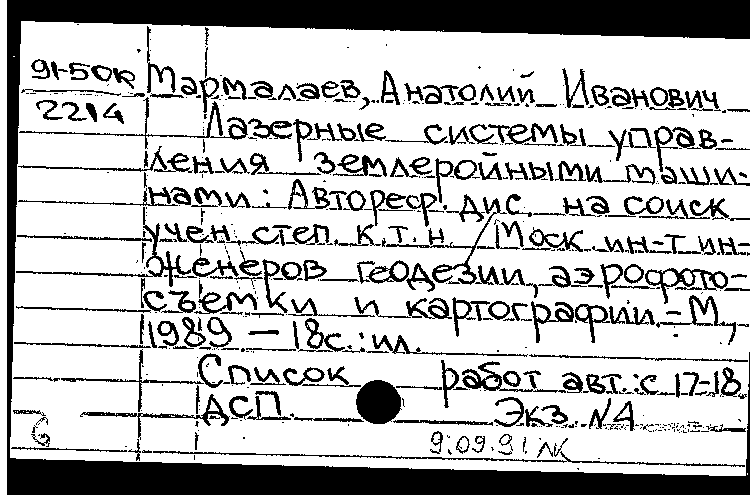 91-50к Мармалаев, Анатолий Иванович
2214 Лазерные системы управ-
ления землеройными маши-
нами: Автореф. дис. на соиск
учен степ. к.т.н. / Моск ин-т ин-
женеров геодезии, аэрофото-
съемки и картографии. - М.,
1989 — 18с.: ил.
Список работ авт.: с 17-18
ДСП. Экз. №4
9.09.91 ЛК